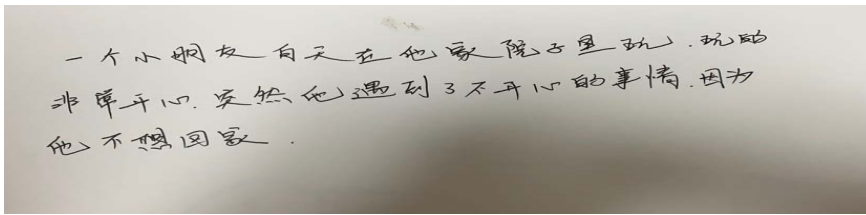 一个小朋友白天在他家院子里玩.玩的
非常开心.突然他遇到了不开心的事情.因为
他不想回家.